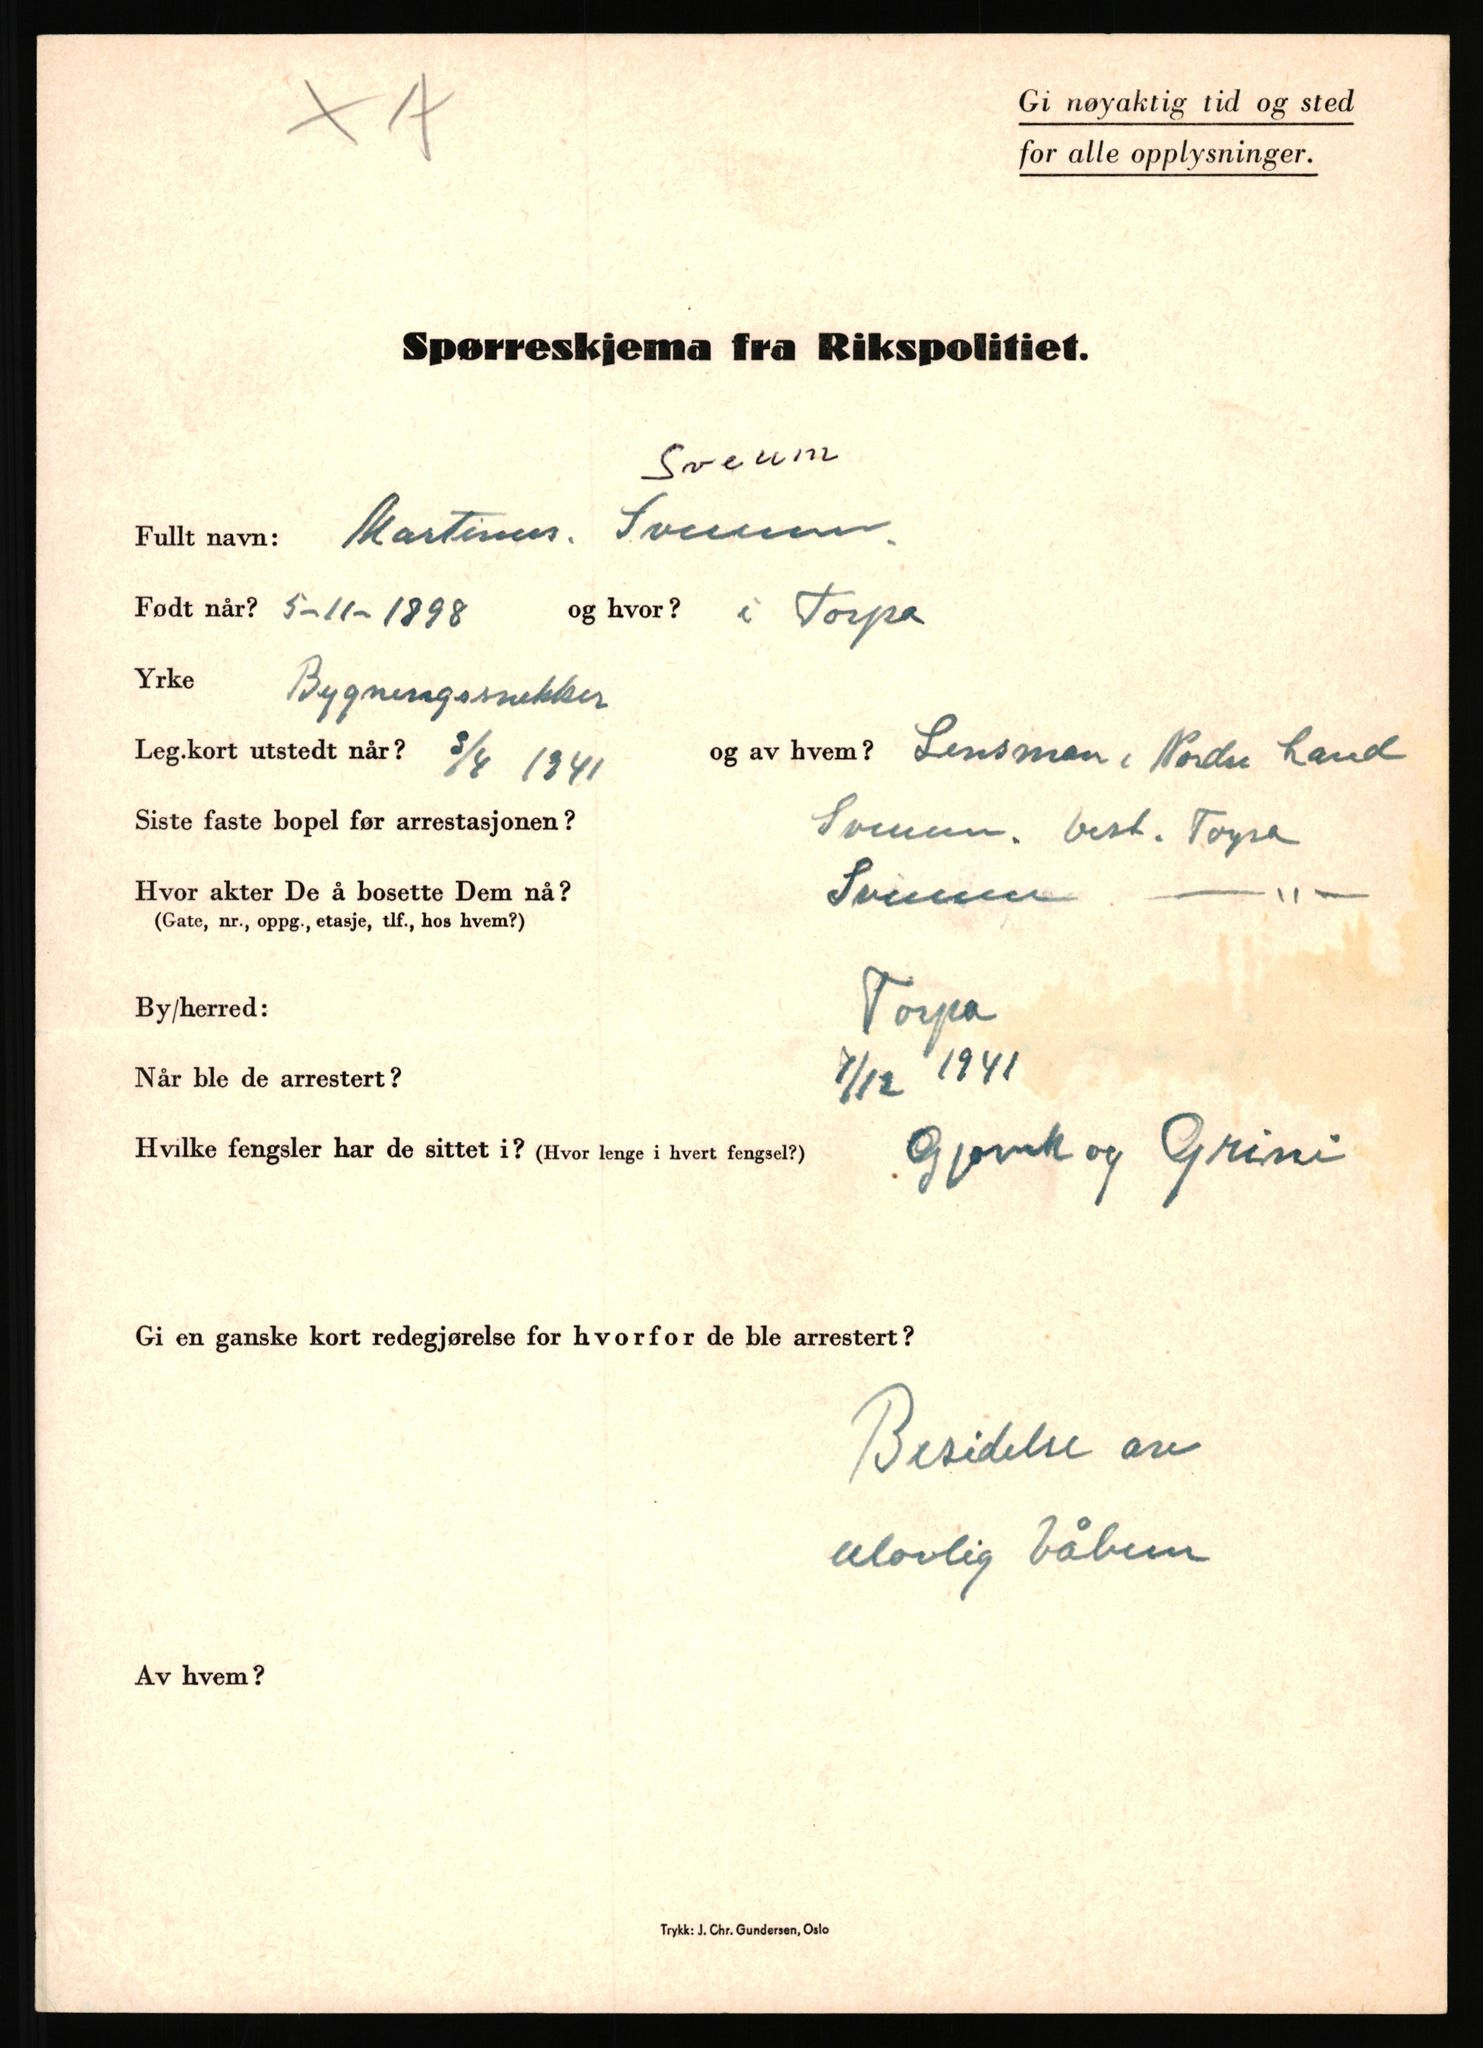 X A
Gi nøyaktig tid og sted
for alle opplysninger.
Spørreskjema fra Rikspolitiet.
Sveum
Fullt navn: Martinus. Sveum.
Født når? 5-11-1898 og hvor? i Torpa
Yrke Bygningssnekker
Leg.kort utstedt når? 3/4 1941 og av hvem? Lensman i Nordre Land
Siste faste bopel før arrestasjonen? Sveum. Vest. Torpa
Hvor akter De å bosette Dem nå? Sveum — " —
(Gate, nr., oppg., etasje, tlf., hos hvem?)
By/herred: Torpa
Når ble de arrestert? 7/12 1941
Hvilke fengsler har de sittet i? (Hvor lenge i hvert fengsel?) Gjøvik og Grini
Gi en ganske kort redegjørelse for hvorfor de ble arrestert?
Besidelse av
ulovlig våben
Av hvem?
Trykk: J. Chr. Gundersen, Oslo